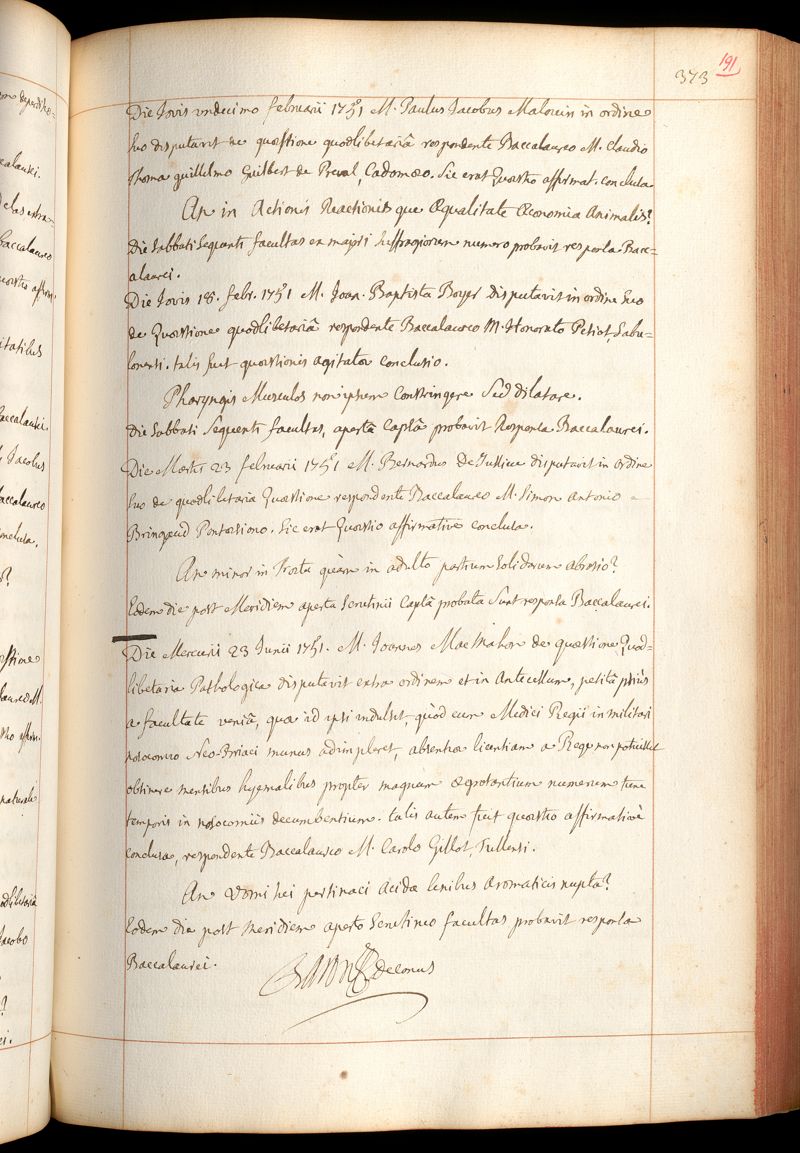 373 191
Die Jovis undecimo februarii 1751 M. Paulus Jacobus Malouin in ordine
suo disputavit de quæstione quodlibetariâ respondente Baccalaureo M. Claudio
Thoma guillelmo Guilbert de Preval, Cadomæo. Sic erat Quæstio affirmat. conclusa
An in Actionis Reactionisque Æqualitate Œconomia Animalis?
Die Sabbati Sequenti facultas ex majori Suffragiorum numero probavit responsa Bacc=
alaurei.
Die Jovis 18. febr. 1751 M. Joan. Baptista Boyer disputavit in ordine suo
de Quæstione quodlibetariâ respondente Baccalaureo M. Honorato Petiot, Sabu=
lonensi. talis fuit quæstionis agitatæ conclusio.
Pharyngis Musculos non ipsum Constringere Sed dilatare.
die Sabbati Sequenti facultas, apertâ Capsâ probavit Responsa Baccalaurei.
Die Martis 23 februarii 1751 M. Bernardus De Jussieu disputavit in ordine
suo de quodlibetaria Quæstione respondente Baccalaureo M. Simon Antonio
Bringaud Sic erat Quæstio affirmative conclusa.
An minor in fœtu quàm in adulto partium Solidarum abrasio?
Eodem die post Meridiem aperta Scrutinii Capsâ probata Sunt responsa Baccalaurei.
Die Mercurii 23 Junii 1751. M. Joannes MacMahon de quæstione Quod=
libetaria Pathologica disputavit extra ordinem et in Antecessum, petitâ priùs
a facultate veniâ, quæ id ipsi indulsit, quòd cum Medici Regii in militari
nosocomio Neo-Brisaci munus adimpleret, absentiæ licentiam a Rege non potuisset
obtinere mensibus hyemalibus propter magnum ægrotantium numerum tunc
temporis in nosocomiis decumbentium. talis autem fuit quæstio affirmativè
conclusa, respondente Baccalaureo M. Carolo Gillot, Tullensi.
An Vomi hei pertinaci acida lenibus aromaticis nupta?
Eodem die post meridiem aperto Scrutinio facultas probavit responsa
Baccalaurei.
Baron decanus